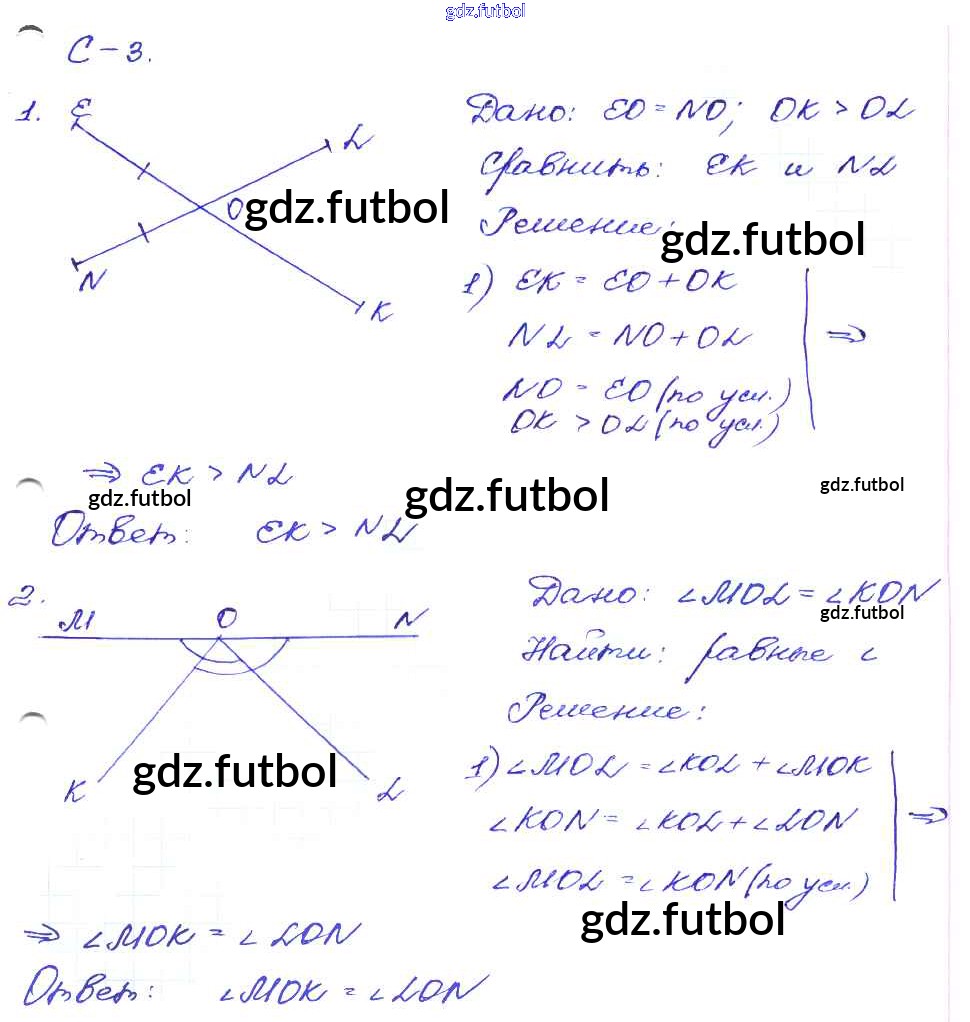 gdz.futbol
С-3.
1. E
L
O
N
K
gdz.futbol
Дано: EO = NO; OK > OL
Сравнить: EK и NL
Решение:
gdz.futbol
1) EK = EO + OK
NL = NO + OL
⇒
NO = EO (по усл.)
OK > OL (по усл.)
⇒ EK > NL
gdz.futbol
gdz.futbol
gdz.futbol
Ответ: EK > NL
2.
M O N
K L
gdz.futbol
Дано: ∠MOL = ∠KON
gdz.futbol
Найти: равные ∠
Решение:
1) ∠MOL = ∠KOL + ∠MOK
∠KON = ∠KOL + ∠LON
⇒
∠MOL = ∠KON (по усл.)
gdz.futbol
⇒ ∠MOK = ∠LON
Ответ: ∠MOK = ∠LON